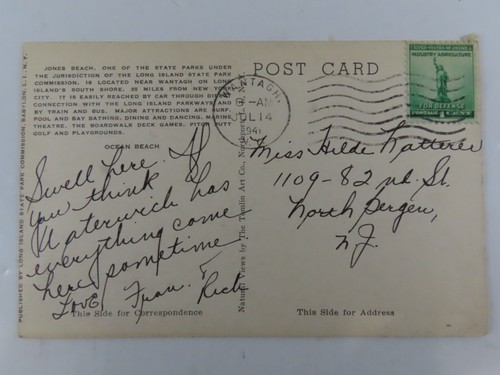 JONES BEACH, ONE OF THE STATE PARKS UNDER
THE JURISDICTION OF THE LONG ISLAND STATE PARK
COMMISSION, IS LOCATED NEAR WANTAGH ON LONG
ISLAND'S SOUTH SHORE, 35 MILES FROM NEW YORK
CITY. IT IS EASILY REACHED BY CAR THROUGH DIRECT
CONNECTION WITH THE LONG ISLAND PARKWAYS AND
BY TRAIN AND BUS. MAJOR ATTRACTIONS ARE SURF,
POOL AND BAY BATHING, DINING AND DANCING, MARINE
THEATRE, THE BOARDWALK DECK GAMES, PITCH PUTT
GOLF AND PLAYGROUNDS.
OCEAN BEACH
Swell here. If
you think
Waterwich has
everything come
here sometime
Love, Fran. &
Rich
This Side for Correspondence
PUBLISHED BY LONG ISLAND STATE PARK COMMISSION, BABYLON, L. I., N. Y.
Natural Views by The Tomlin Art Co., Northport
POST CARD
WANTAGH
JUL 14
1941
UNITED STATES OF AMERICA
INDUSTRY AGRICULTURE
FOR DEFENSE
1 CENT
Miss Hilde
1109-82 nd. St.
North Bergen,
N.J.
This Side for Address